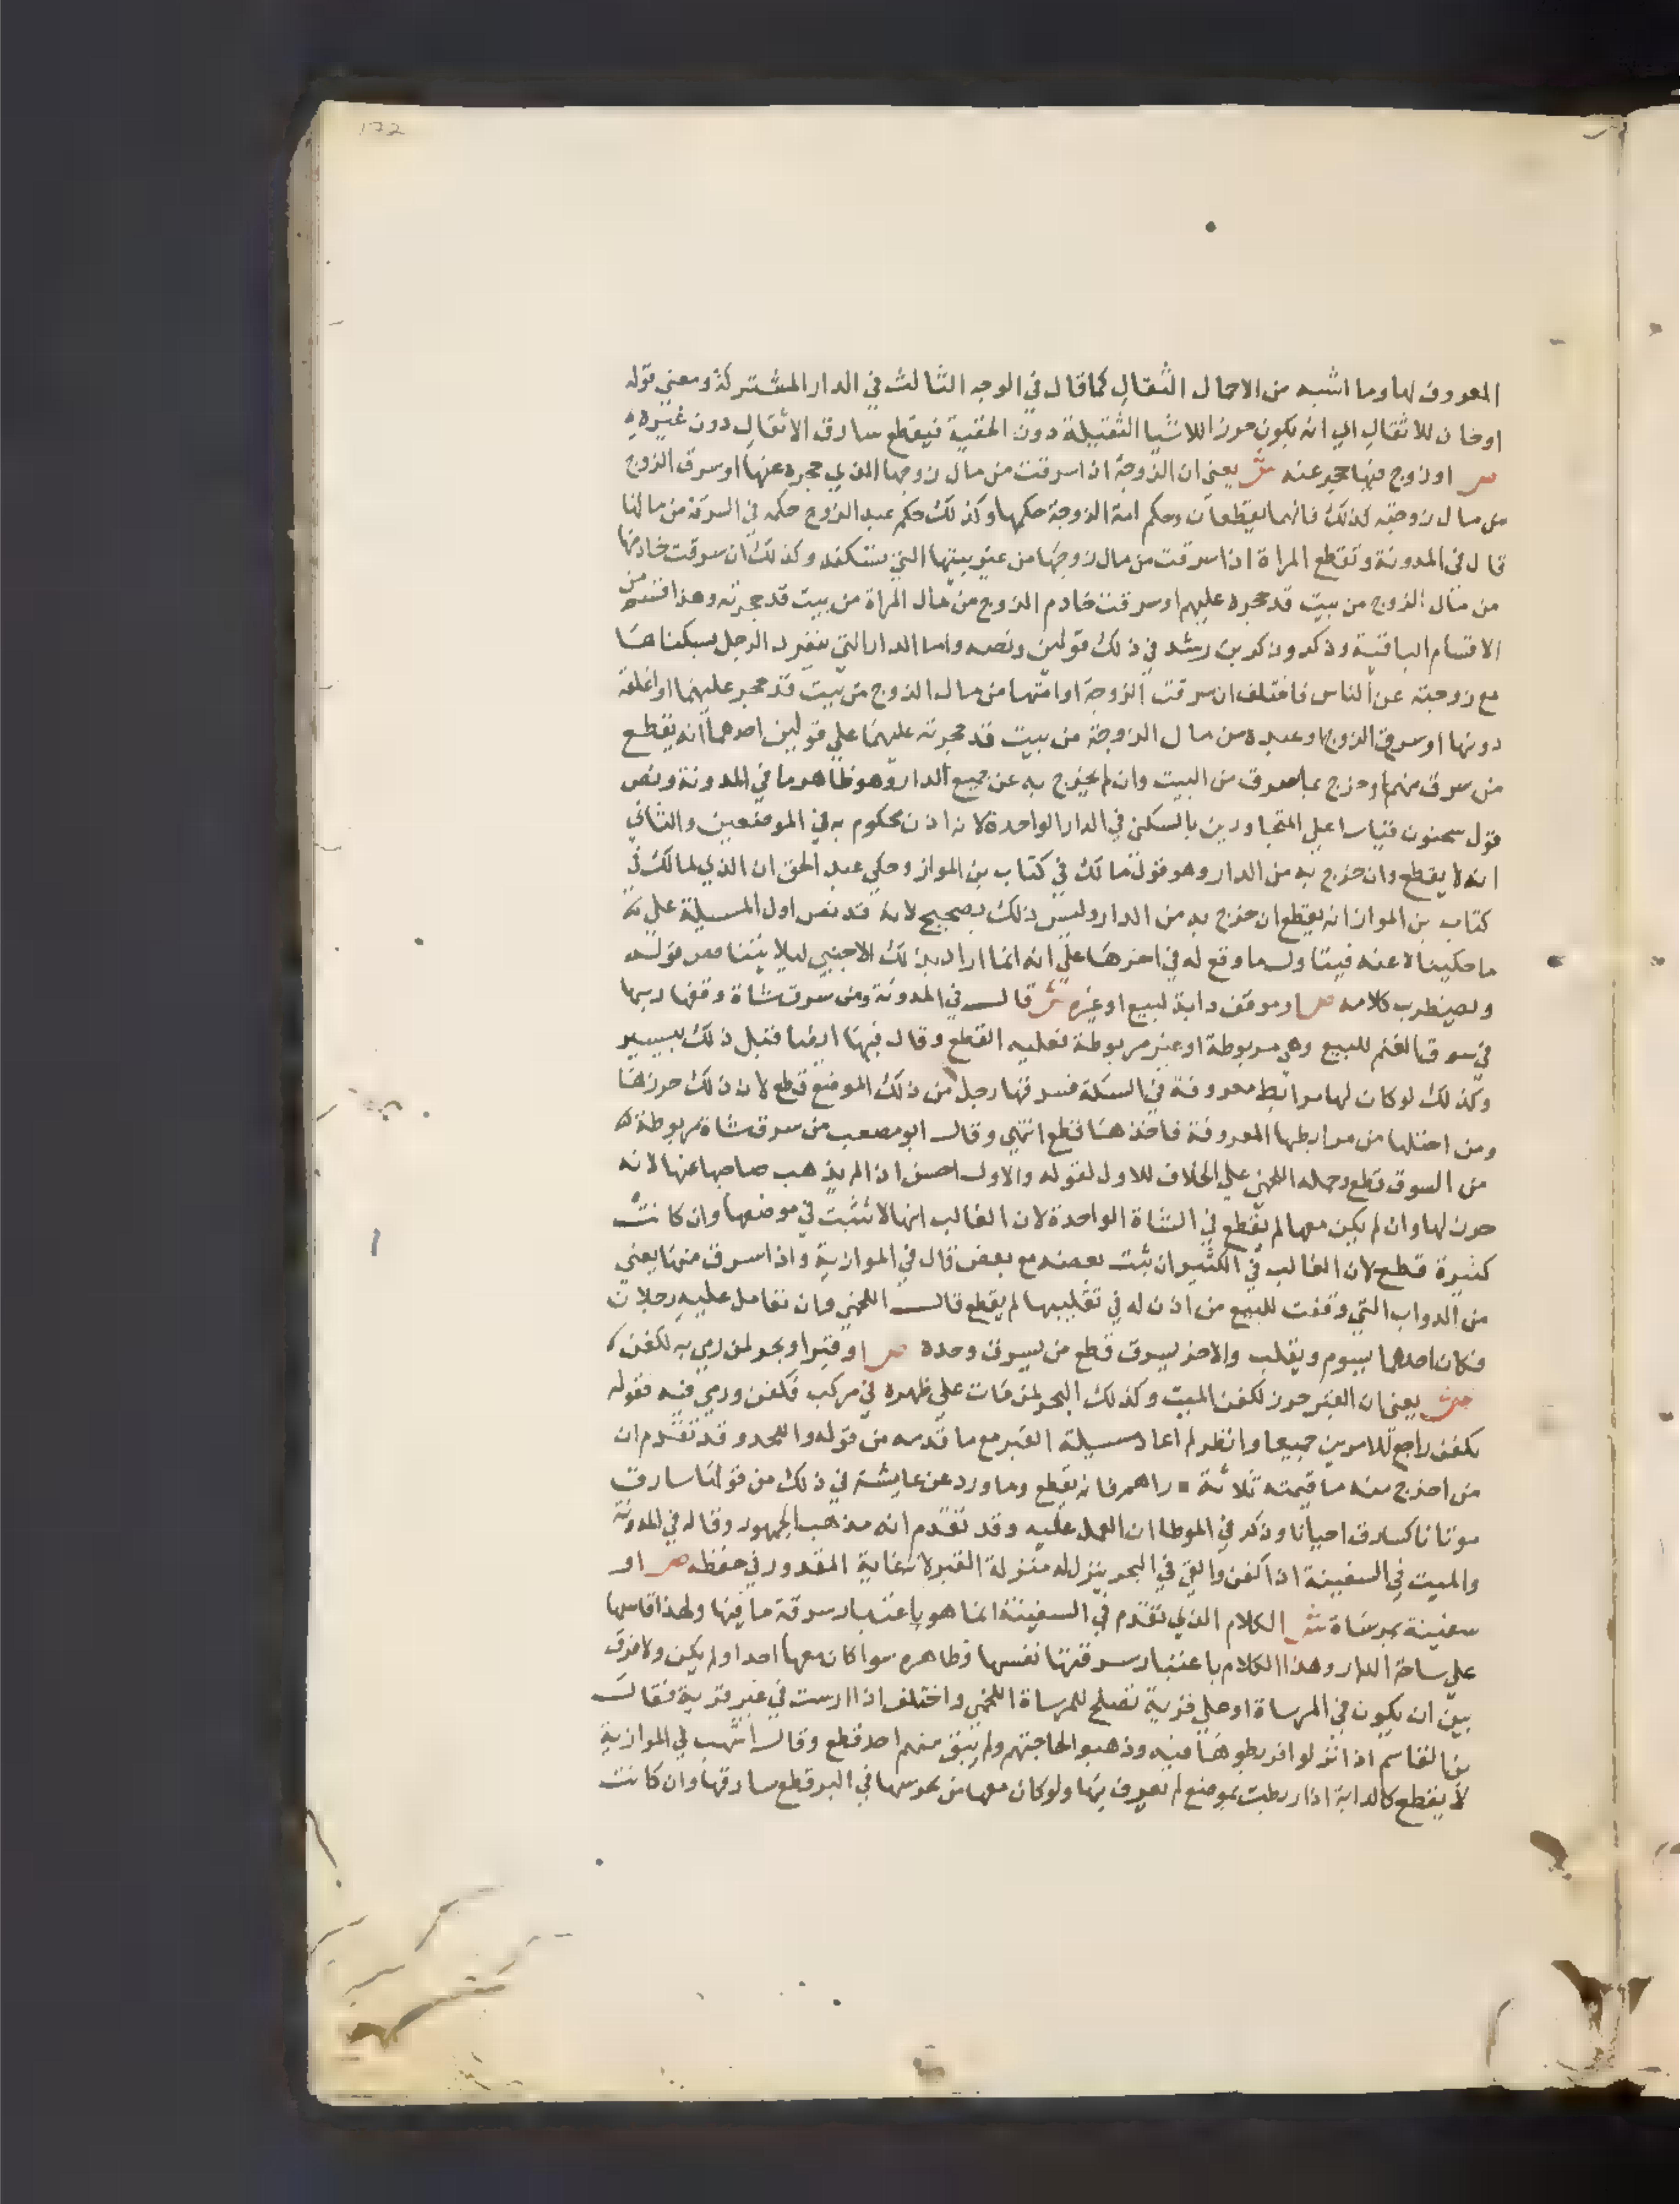 172
المعروف لها وما اشبه من الاحمال الثقال كما قال في الوجه الثالث في الدار المشتركة ومعني قوله
اوخان للاثقال اي انه يكون حرز اللاشيا الثقيلة دون الخفية فيقطع سارق الاثقال دون غيره
ص او زوج فيها حجر عنه ش يعني ان الزوجة اذا سرقت من مال زوجها الذي حجره عنها او سرق الزوج
من مال زوجته كذلك فانهما يقطعان وحكم امة الزوجة حكمها وكذلك حكم عبد الزوج حكمه في السرقة من مالها
قال في المدونة وتقطع المراة اذا سرقت من مال زوجها من غير بيتها التي تسكنه وكذلك ان سرقت خادمها
من مال الزوج من بيت قد حجره عليهم او سرقت خادم الزوج من مال المراة من بيت قد حجرته وهذا قسم من
الاقسام الباقية وذكر وذكر بن رشد في ذلك قولين ونصه واما الدار التي ينفرد الرجل بسكناها
مع زوجته عن الناس فاختلف ان سرقت الزوجة او امتها من مال الزوج من بيت قد حجر عليهما او اغلقه
دونها او سرق الزوج او عبده من مال الزوجة من بيت قد حجرته عليهما علي قولين احدهما انه يقطع
من سرق منهم او خرج بما سرق من البيت وان لم يخرج به عن جميع الدار وهو ظاهر ما في المدونة ونص
قول سحنون قياسا علي المتجاورين بالسكن في الدار الواحدة لان الاذن محكوم به في الموضعين والثاني
انه لا يقطع وان خرج به من الدار وهو قول مالك في كتاب بن المواز وحكي عبد الحق ان الذي لمالك في
كتاب بن المواز انه يقطع ان خرج به من الدار وليس ذلك بصحيح لانه قد نص اول المسيلة علي
ما حكيناه عنه فيتاول ما وقع له في اخرها علي انه انما اراد بذلك الاجنبي ليلا يتناقض قوله
ويضطرب كلامه ص او موقف دابة لبيع او غيره ش قال في المدونة ومن سرق شاة وقفها ربها
في سوق الغنم للبيع وهي مربوطة او غير مربوطة فعليه القطع وقال فيها ايضا قبل ذلك بيسير
وكذلك لو كان لها مرابط معروفة في السكة فسرقها رجل من ذلك الموضع قطع لان ذلك حرزها
ومن احتلها من مرابطها المعروفة فاخذها قطع انتهي وقال ابو مصعب من سرق شاة مربوطة
من السوق قطع وحمله اللخمي علي الخلاف للاول لقوله والاول احسن اذا لم يذهب صاحبها عنها لانه
حرز لها وان لم يكن معها لم يقطع في الشاة الواحدة لان الغالب انها لا تثبت في موضعها وان كانت
كثيرة قطع لان الغالب في الكثير ان يثبت بعضه مع بعض قال في الموازية واذا سرق منها يعني
من الدواب التي وقفت للبيع من اذن له في تقليبها لم يقطع قال اللخمي وان تعامل عليه رجلان
فكان احدهما يسوم ويقلب والاخر يسرق قطع من يسرق وحده ص او قبر او بحر لمن رمي به لكفن
ش يعني ان القبر حرز لكفن الميت وكذلك البحر لمن مات علي ظهره في مركب فكفن ورمي فيه فقوله
بكفن راجع للامرين جميعا وانظر لم اعاد مسيلة القبر مع ما قدمه من قوله واللحد وقد تقدم ان
من اخرج منه ما قيمته ثلاثة دراهم فانه يقطع وما ورد عن عايشة في ذلك من قولنا سارق
موتانا كسارق احيانا وذكر في الموطا ان العمل عليه وقد تقدم انه مذهب الجمهور وقاله في المدونة
والميت في السفينة اذا كفن والقي في البحر ينزل له منزلة القبر لانه غاية المقدور في حفظه ص او
سفينة بمرساة ش الكلام الذي تقدم في السفينة انما هو باعتبار سرقة ما فيها ولهذا قاسها
علي ساحة الدار وهذا الكلام باعتبار سرقتها نفسها وظاهره سوا كان معها احد او لم يكن ولا فرق
بين ان يكون في المرساة او علي قرية تصلح للمرساة اللخمي واختلف اذا ارست في غير قرية فقال
بن القاسم اذا نزلوا فربطوها فيه وذهبوا لحاجتهم ولم يبق منهم احد قطع وقال اشهب في الموازية
لا يقطع كالدابة اذا ربطت بموضع لم تعرف بها ولو كان معها من يحرسها في البر قطع سارقها وان كانت